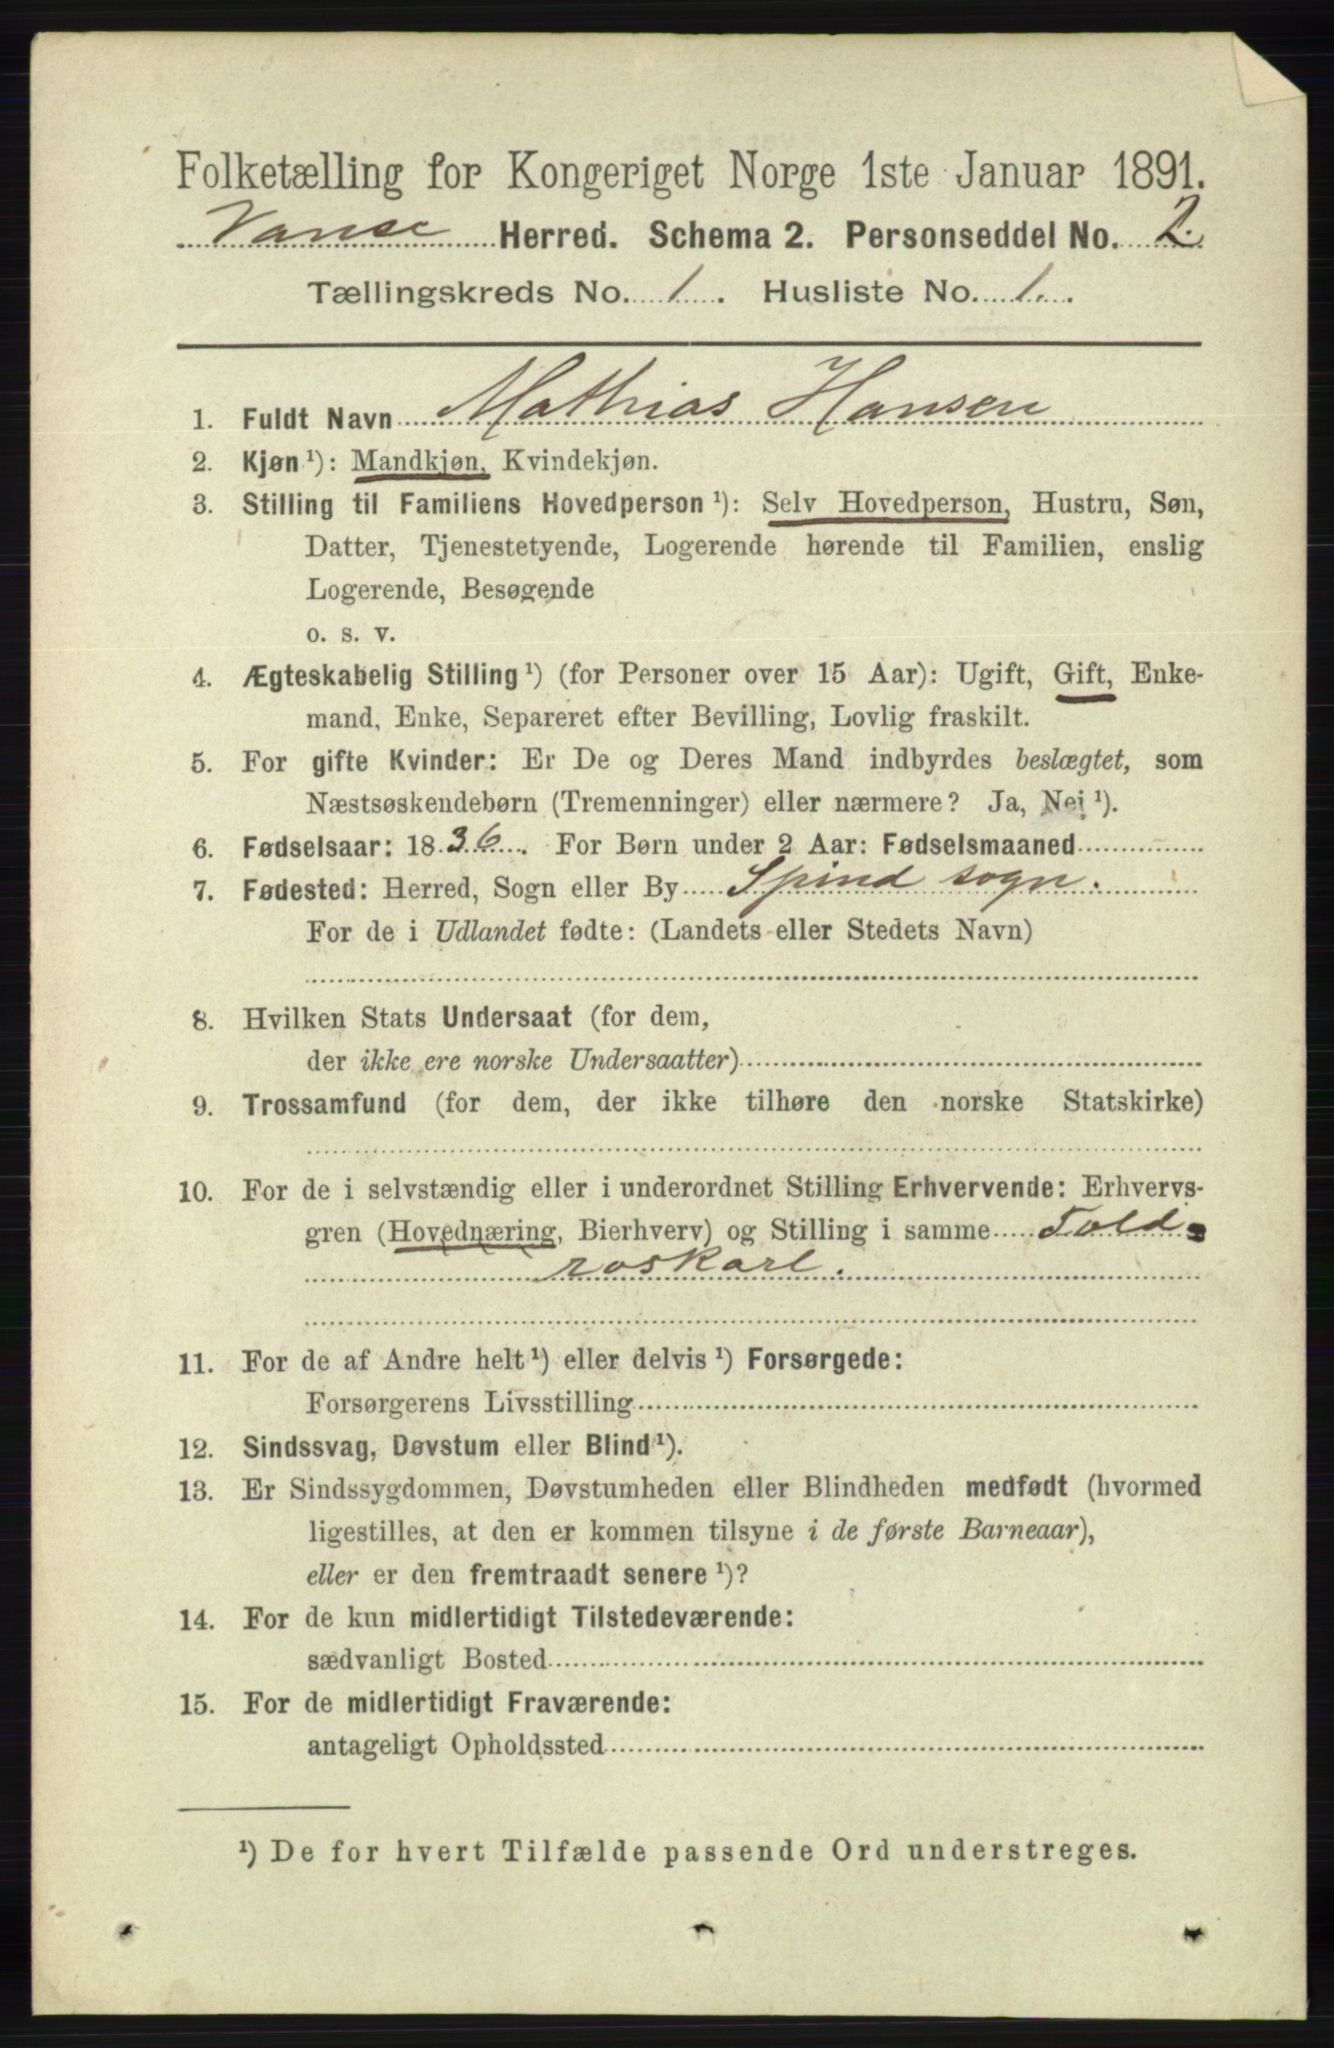 Folketælling for Kongeriget Norge 1ste Januar 1891.
Vanse Herred. Schema 2. Personseddel No. 2.
Tællingskreds No. 1. Husliste No. 1.
1. Fuldt Navn Mathias Hansen
2. Kjøn ¹): Mandkjøn, Kvindekjøn.
3. Stilling til Familiens Hovedperson ¹): Selv Hovedperson, Hustru, Søn,
Datter, Tjenestetyende, Logerende hørende til Familien, enslig
Logerende, Besøgende
o. s. v.
4. Ægteskabelig Stilling ¹) (for Personer over 15 Aar): Ugift, Gift, Enke-
mand, Enke, Separeret efter Bevilling, Lovlig fraskilt.
5. For gifte Kvinder: Er De og Deres Mand indbyrdes beslægtet, som
Næstsøskendebørn (Tremenninger) eller nærmere? Ja, Nei ¹).
6. Fødselsaar: 1836. For Børn under 2 Aar: Fødselsmaaned
7. Fødested: Herred, Sogn eller By Spind sogn.
For de i Udlandet fødte: (Landets eller Stedets Navn)
8. Hvilken Stats Undersaat (for dem,
der ikke ere norske Undersaatter)
9. Trossamfund (for dem, der ikke tilhøre den norske Statskirke)
10. For de i selvstændig eller i underordnet Stilling Erhvervende: Erhvervs-
gren (Hovednæring, Bierhverv) og Stilling i samme Told-
roskarl.
11. For de af Andre helt ¹) eller delvis ¹) Forsørgede:
Forsørgerens Livsstilling
12. Sindssvag, Døvstum eller Blind ¹).
13. Er Sindssygdommen, Døvstumheden eller Blindheden medfødt (hvormed
ligestilles, at den er kommen tilsyne i de første Barneaar),
eller er den fremtraadt senere ¹)?
14. For de kun midlertidigt Tilstedeværende:
sædvanligt Bosted
15. For de midlertidigt Fraværende:
antageligt Opholdssted
¹) De for hvert Tilfælde passende Ord understreges.